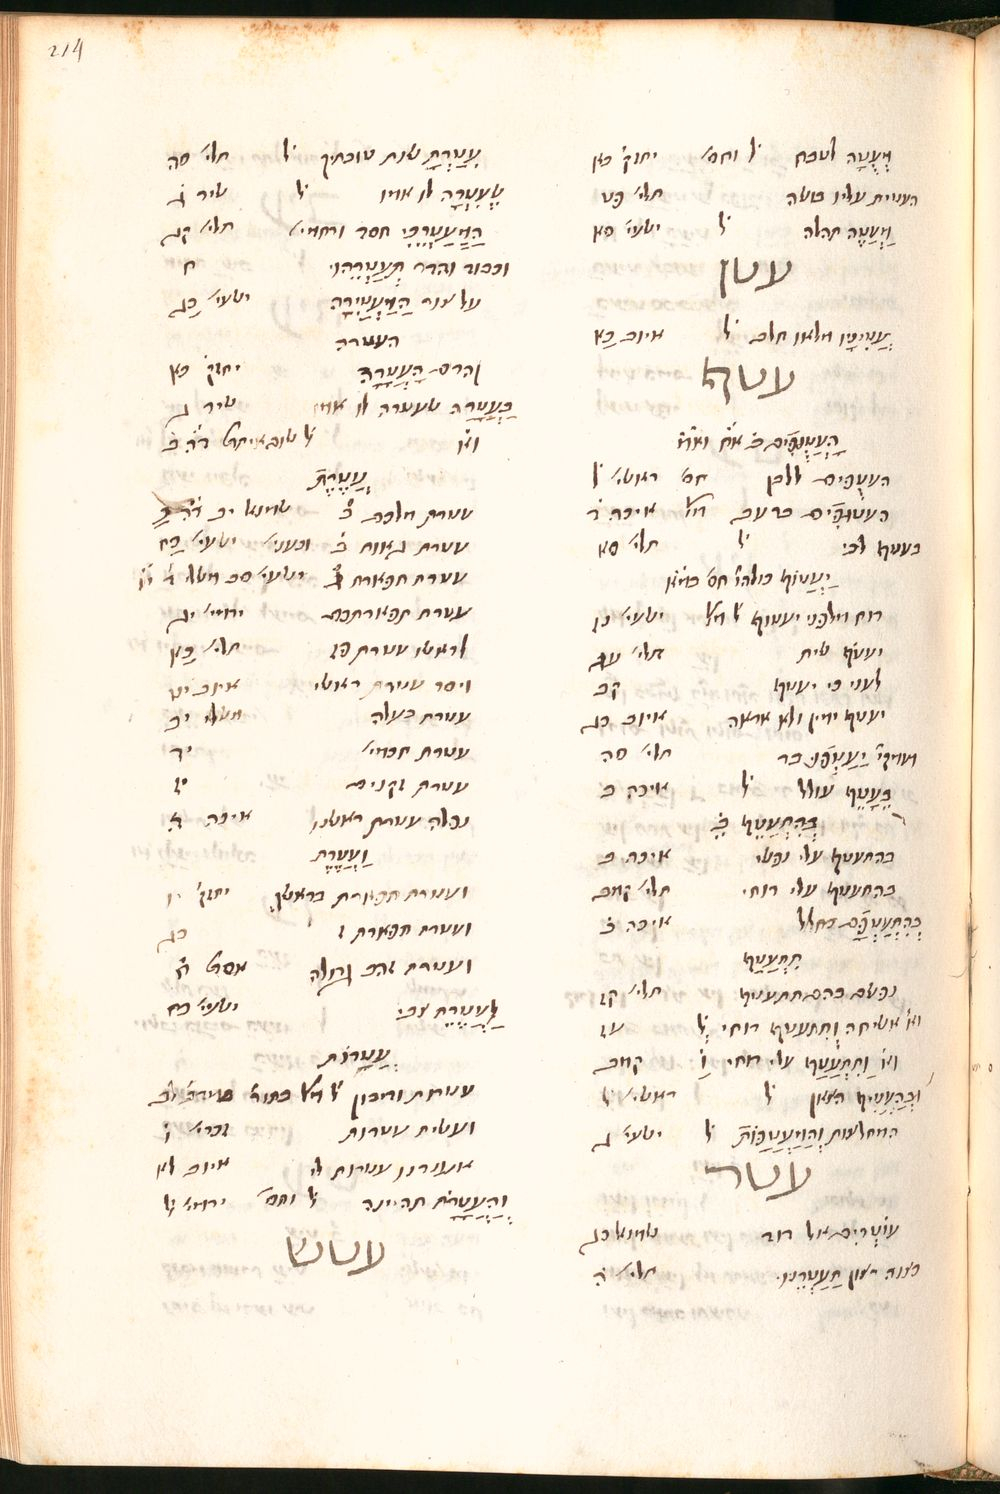 214
מְעֻטָּה לטבח ל' וחס' יחזק' כא
העטית עליו בושה תלי' פט
מַעֲטֵה תהלה ל' ישעי' סא
עטן
עֲטִינָיו מלאו חלב ל' איוב כא
עטף
הָעֲטֻפִים
העטפים ללבן חס' ראשי' ל
העטופים ברעב מל' איכה ב
בעטף לבי ל' תלי' סא
יַעֲטוֹף
רוח מלפני יעטוף ל' מל' ישעי' נז
יעטף שית תלי' עג
לעני כי יעטף קב
יעטף ימין ולא אראה איוב כג
ועמקי' יַעַטְפוּ בר תלי' סה
בֵּעָטֵף עולל ל' איכה ב
בְּהִתְעַטֵּף ב'
בהתעטף עלי נפשי איכה ב
בהתעטף עלי רוחי תלי' קמב
בְּהִתְעַטְּפָם כחלל איכה ב
תִּתְעַטָּף
נפשם בהם תתעטף תלי' קז
אשיחה ותתעטף רוחי ל' עז
וַתִּתְעַטֵּף עלי רוחי קמג
וּבְהַעֲטִיף הצאן ל' ראשי' ל
המחלצות וְהַמַּעֲטָפוֹת ל' ישעי' ג
עטר
עוֹטְרִים אל דוד שמוא' כג
כצנה רצון תַּעְטְרֶנּוּ תלי' ה
עִטַּרְתָּ שנת טובתיך ל' תלי' סה
שֶׁעִטְּרָה לו אמו ל' שיר ג
הַמְעַטְּרֵכִי חסד ורחמי' תלי' קג
וכבוד והדר תְּעַטְּרֵהוּ ח
על צור הַמַּעֲטִירָה ישעי' כג
העטרה
והרם הָעֲטָרָה יחזק' כא
בָּעֲטָרָה שעטרה לו אמו שיר ג
עֲטֶרֶת
עטרת מלכם שמוא' יב
עטרת גאות ב' ישעי' כח
עטרת תפארת ישעי' סב משלי
עטרת תפארתכם ירמי' יג
לראשו עטרת פז תלי' כא
ויסר עטרת ראשי איוב יט
עטרת בעלה משלי יב
עטרת חכמי' יד
עטרת זקנים יז
נפלה עטרת ראשנו איכה ה
וַעֲטֶרֶת
ועטרת תפארת בראשך יחזק' יו
ועטרת תפארת
ועטרת זהב גדולה אסת' ח
לַעֲטֶרֶת צבי ל' ישעי' כח
עֲטָרוֹת
עטרות ודיבון
ועשית עטרות זכרי' ו
אענדנו עטרות לי איוב לא
וְהָעֲטָרֹת תהיינה ל' וחס'
עטש